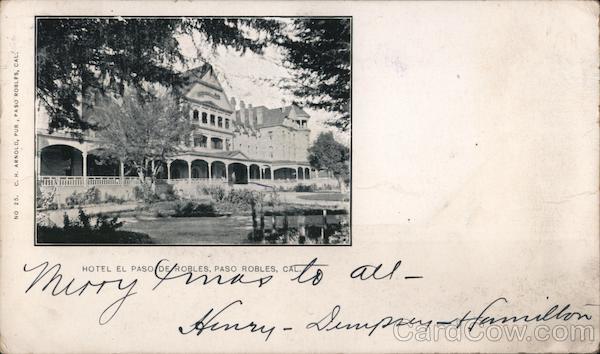 NO 25. C. H. ARNOLD, PUB., PASO ROBLES, CAL.
HOTEL EL PASO DE ROBLES, PASO ROBLES, CAL.
Merry Xmas to all –
Henry – Dempsey – Hamilton
CardCow.com